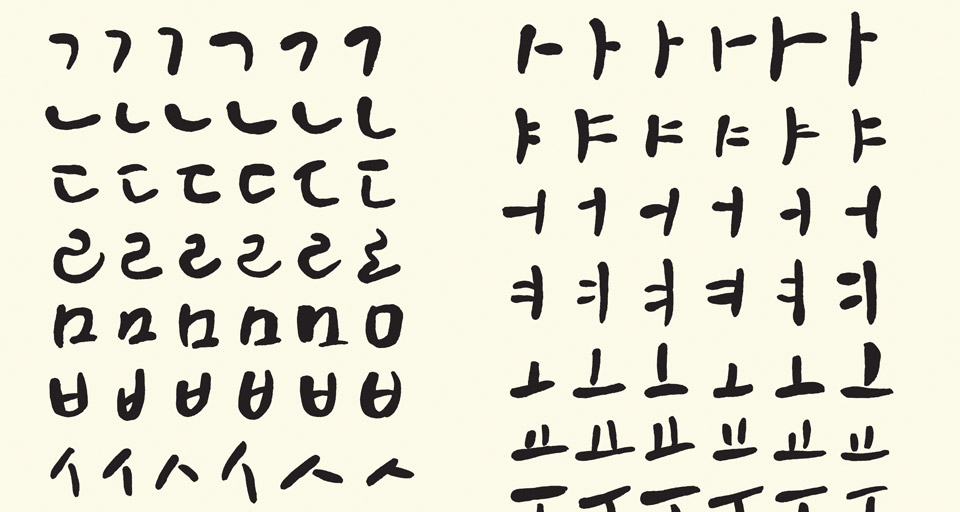 ㄱㄱㄱㄱㄱㄱ
ㄴㄴㄴㄴㄴㄴ
ㄷㄷㄷㄷㄷㄷ
ㄹㄹㄹㄹㄹㄹ
ㅁㅁㅁㅁㅁㅁ
ㅂㅂㅂㅂㅂㅂ
ㅅㅅㅅㅅㅅㅅ
ㅏㅏㅏㅏㅏㅏ
ㅑㅑㅑㅑㅑㅑ
ㅓㅓㅓㅓㅓㅓ
ㅕㅕㅕㅕㅕㅕ
ㅗㅗㅗㅗㅗㅗ
ㅛㅛㅛㅛㅛㅛ
ㅜㅜㅜㅜㅜㅜ